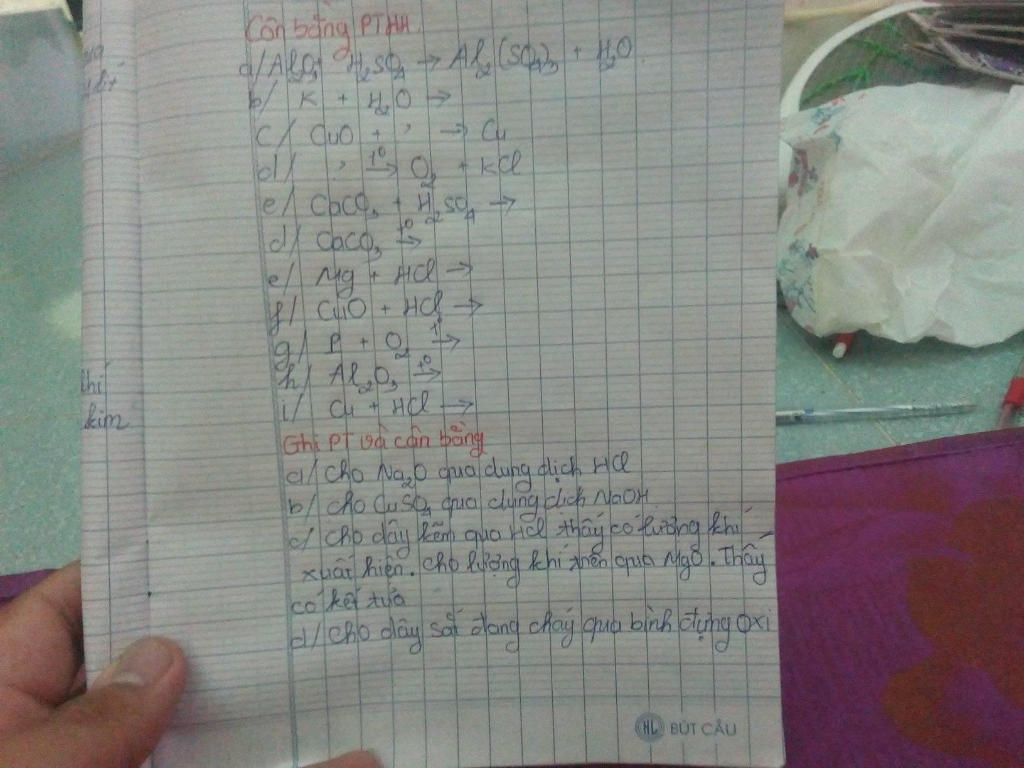 Cân bằng PTHH.
a/ Al₂O₃ H₂SO₄ → Al₂(SO₄)₃ + H₂O
b/ K + H₂O →
c/ CuO + ? → Cu
d/ ? t⁰→ O₂ + KCl
e/ CaCO₃ + H₂SO₄ →
d/ CaCO₃ t⁰→
e/ Mg + HCl →
f/ CuO + HCl →
g/ P + O₂ t⁰→
h/ Al₂O₃ t⁰→
i/ Cu + HCl →
Ghi PT và cân bằng
a/ cho Na₂O qua dung dịch HCl
b/ cho CuSO₄ qua dung dịch NaOH
c/ cho dây kẽm qua HCl thấy có lượng khí
xuất hiện. cho lượng khí trên qua MgO. Thấy
có kết tủa
d/ cho dây sắt đang cháy qua bình đựng oxi
khí
kim
HL BÚT CÂU